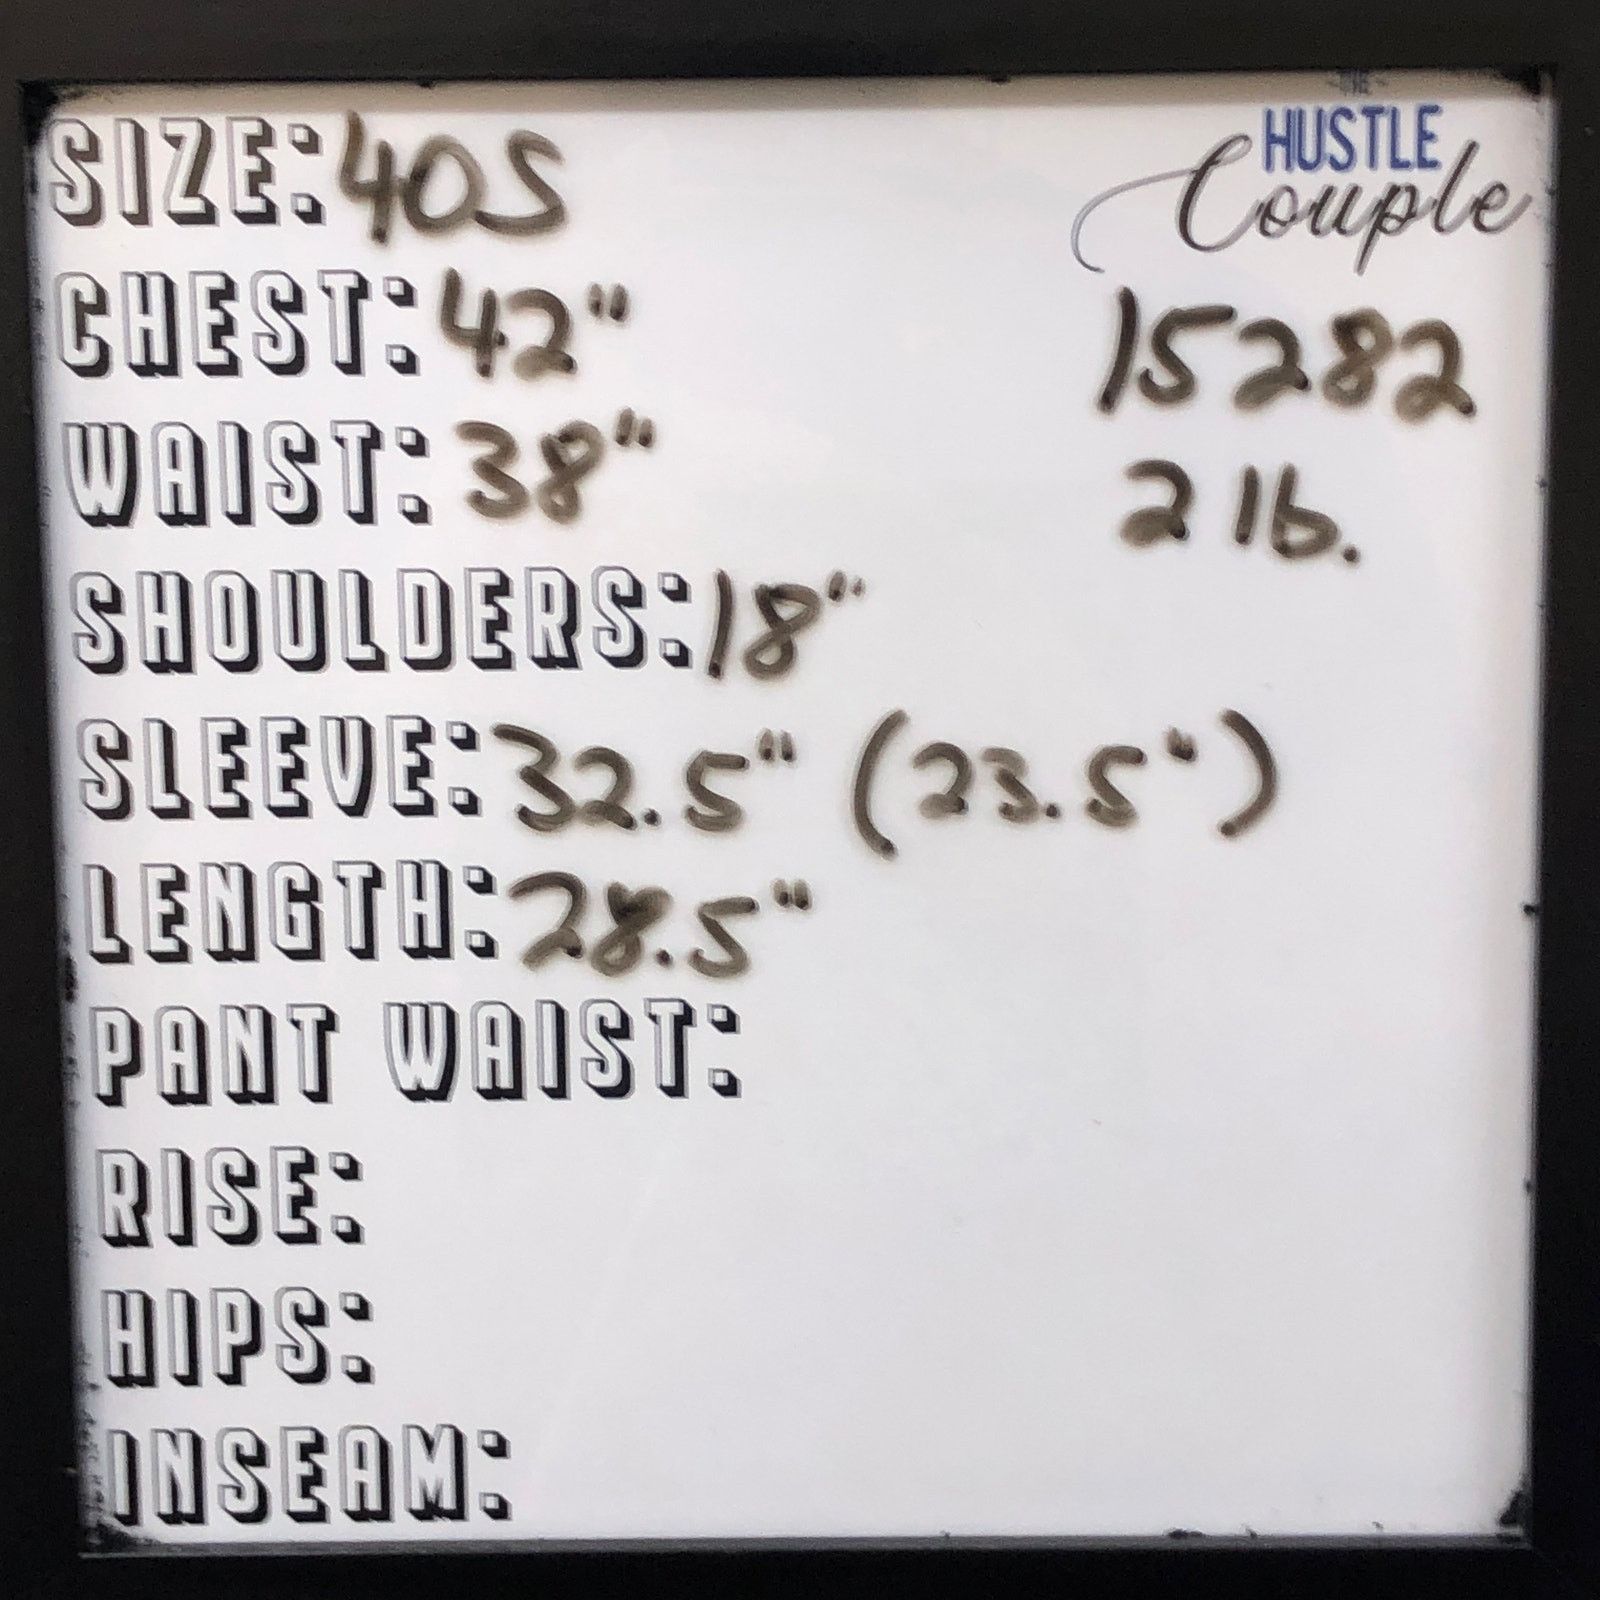 THE
HUSTLE
Couple
SIZE: 40S
CHEST: 42"
15282
WAIST: 38"
2 lb.
SHOULDERS: 18"
SLEEVE: 32.5" (23.5")
LENGTH: 28.5"
PANT WAIST:
RISE:
HIPS:
INSEAM: